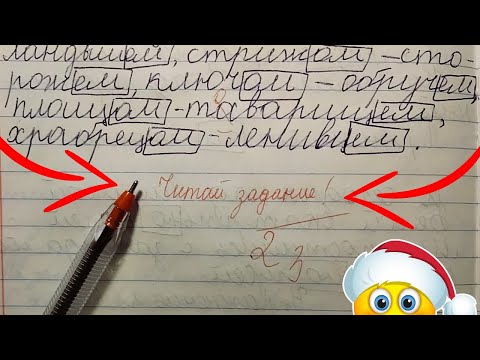 ландышем, стрижом - сто-
рожем, ключом - обручем,
плащом - товарищем,
храбрецом - ленивцем.
Читай задание!
2 3